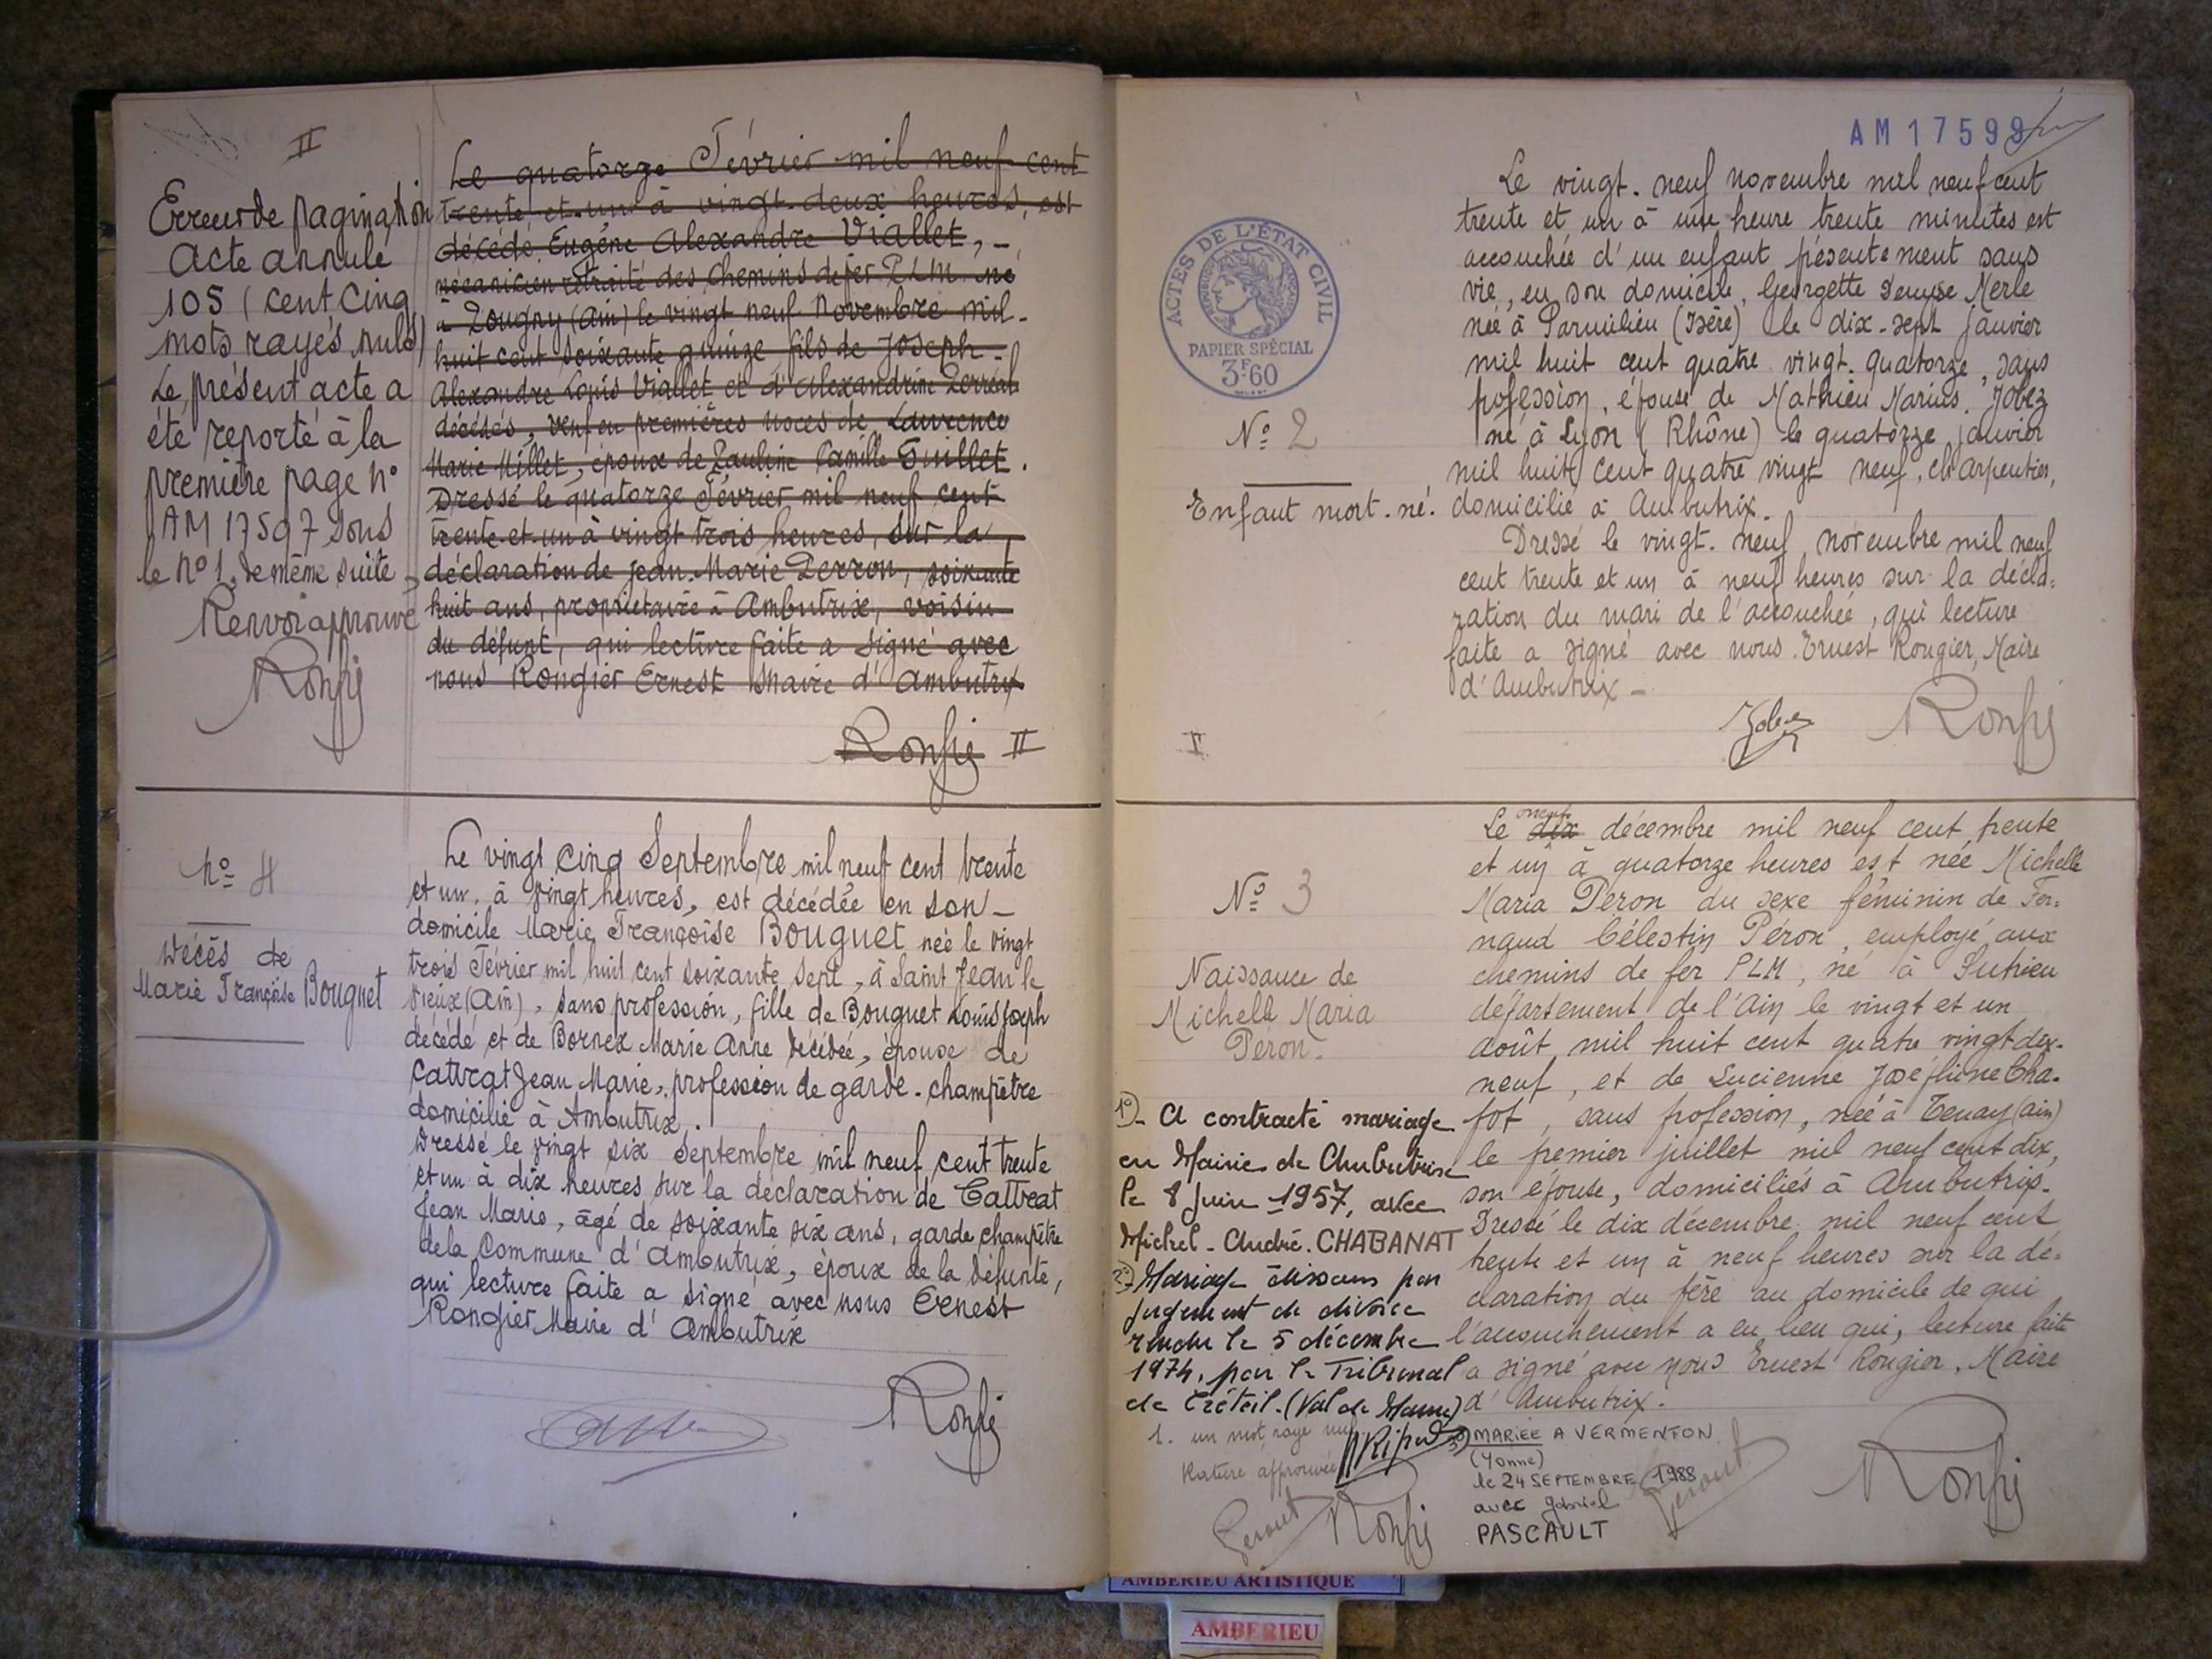 II
Erreur de pagination
Acte annulé
105 (cent cinq
mots rayés nuls)
Le présent acte a
été reporté à la
première page n°
AM 17597 sous
le n° 1, de même suite
Renvoi approuvé
Le quatorze Février mil neuf cent
trente et un à vingt-deux heures, est
décédé Eugène Alexandre Viallet, -
mécanicien retraité des Chemins de fer PLM né
à Pougny (Ain) le vingt neuf Novembre mil-
huit cent soixante quinze fils de Joseph-
Alexandre Louis Viallet et d'Alexandrine Perréal
décédés, veuf en premières noces de Laurence
Marie Millet, époux de Pauline Camille Guillet.
Dressé le quatorze Février mil neuf cent
trente et un à vingt trois heures, sur la
déclaration de Jean-Marie Perron, soixante
huit ans, propriétaire à Ambutrix, voisin
du défunt, qui lecture faite a signé avec
nous Rougier Ernest Maire d'Ambutrix
II
N° 4
Décès de
Marie Françoise Bouguet
Le vingt cinq Septembre mil neuf cent trente
et un, à vingt heures, est décédée en son-
domicile Marie Françoise Bouguet née le vingt
trois Février mil huit cent soixante sept, à Saint Jean le
Vieux (Ain), sans profession, fille de Bouguet Louis Joseph
décédé et de Bornex Marie Anne décédée, épouse de
Cattrat Jean Marie, profession de garde-champêtre
domicilié à Ambutrix.
Dressé le vingt six Septembre mil neuf cent trente
et un à dix heures sur la déclaration de Cattrat
Jean Marie, âgé de soixante six ans, garde champêtre
de la Commune d'Ambutrix, époux de la défunte,
qui lecture faite a signé avec nous Ernest
Rougier Maire d'Ambutrix
AM 17599
ACTES DE L'ÉTAT CIVIL
RÉPUBLIQUE
PAPIER SPÉCIAL
3F60
N° 2
Enfant mort-né.
Le vingt-neuf novembre mil neuf cent
trente et un à une heure trente minutes est
accouchée d'un enfant présentement sans
vie, en son domicile, Georgette Denyse Merle
née à Parmilieu (Isère) le dix-sept janvier
mil huit cent quatre vingt-quatorze, sans
profession, épouse de Mathieu Marius Jobez
né à Lyon (Rhône) le quatorze janvier
mil huit cent quatre vingt neuf, charpentier,
domicilié à Ambutrix.
Dressé le vingt-neuf novembre mil neuf
cent trente et un à neuf heures sur la décla=
ration du mari de l'accouchée, qui lecture
faite a signé avec nous Ernest Rougier, Maire
d'Ambutrix -
Jobez
I
N° 3
Naissance de
Michelle Maria
Péron.
Le neuf dix décembre mil neuf cent trente
et un à quatorze heures est née Michelle
Maria Péron du sexe féminin de Fer=
nand Célestin Péron, employé aux
chemins de fer PLM, né à Sutrieu
département de l'Ain le vingt et un
août mil huit cent quatre vingt dix-
neuf, et de Lucienne Joséphine Cha-
fot, sans profession, née à Tenay (ain)
le premier juillet mil neuf cent dix,
son épouse, domiciliés à Ambutrix.
Dressé le dix décembre mil neuf cent
trente et un à neuf heures sur la dé=
claration du père au domicile de qui
l'accouchement a eu lieu qui, lecture faite
a signé avec nous Ernest Rougier, Maire
d'Ambutrix.
1°)- A contracté mariage
en Mairie de Ambutrix
le 8 Juin 1957, avec
Michel-André CHABANAT
2°)- Mariage dissous par
jugement de divorce
rendu le 5 décembre
1974, par le Tribunal
de Créteil. (Val de Marne)
1. un mot rayé nul
Rature approuvée
3°) MARIÉE A VERMENTON
(Yonne)
le 24 SEPTEMBRE 1988
avec Gabriel
PASCAULT
AMBERIEU ARTISTIQUE
AMBERIEU